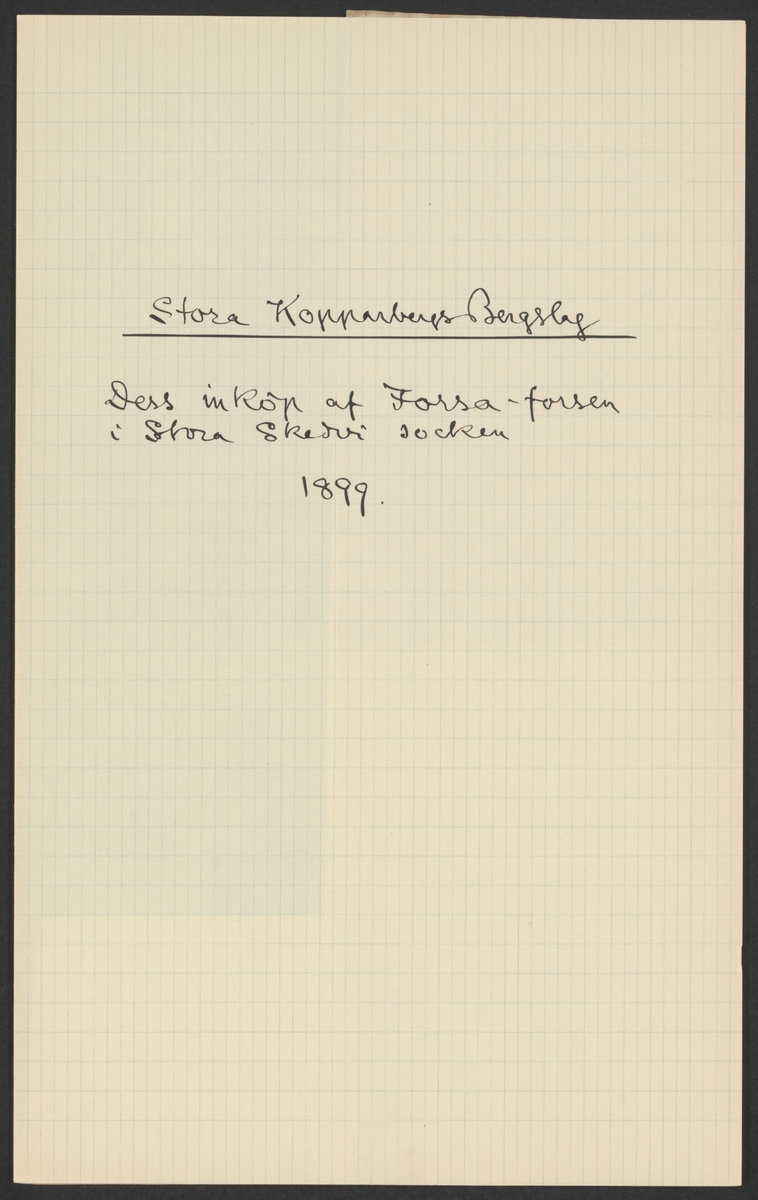 Stora Kopparbergs Bergslag
Dess inköp af Forsa-forsen
i Stora Skedvi socken
1899.